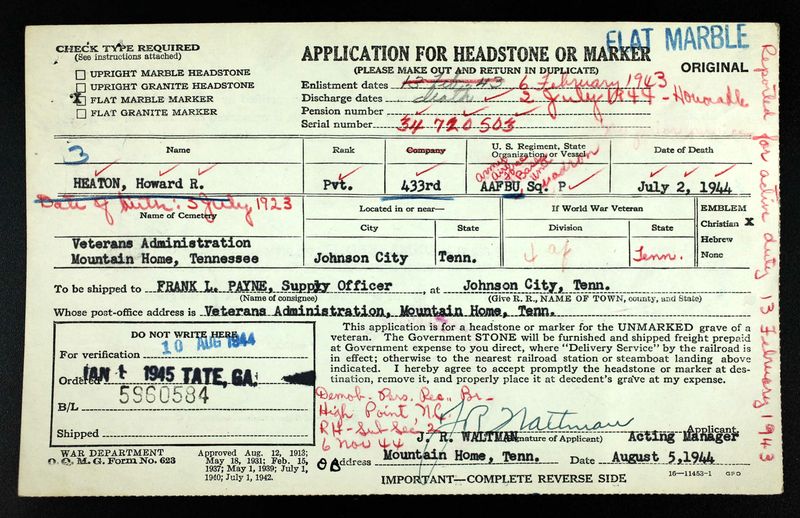 FLAT MARBLE
CHECK TYPE REQUIRED
(See instructions attached)
UPRIGHT MARBLE HEADSTONE
UPRIGHT GRANITE HEADSTONE
X FLAT MARBLE MARKER
FLAT GRANITE MARKER
APPLICATION FOR HEADSTONE OR MARKER
(PLEASE MAKE OUT AND RETURN IN DUPLICATE)
ORIGINAL
Enlistment dates 13 Feb. 43 6 February 1943
Discharge dates death 2 July 1944 - Honorable
Pension number
Serial number 34 720 503
3
Name
Rank
Company
U. S. Regiment, State Organization, or Vessel
Date of Death
HEATON, Howard R.
Pvt.
433rd
Army Air Force Base Unit Squadron
AAFBU, Sq. P
July 2, 1944
Date of birth: 5 July 1923
Name of Cemetery
Located in or near—
City
State
If World War Veteran
Division
State
EMBLEM
Christian X
Hebrew
None
Veterans Administration
Mountain Home, Tennessee
Johnson City
Tenn.
4 af
Tenn.
To be shipped to FRANK L. PAYNE, Supply Officer at Johnson City, Tenn.
(Name of consignee)
(Give R. R., NAME OF TOWN, county, and State)
Whose post-office address is Veterans Administration, Mountain Home, Tenn.
DO NOT WRITE HERE
For verification 10 AUG 1944
Ordered JAN 1 1945 TATE, GA.
5960584
B/L
Shipped
This application is for a headstone or marker for the UNMARKED grave of a
veteran. The Government STONE will be furnished and shipped freight prepaid
at Government expense to you direct, where "Delivery Service" by the railroad is
in effect; otherwise to the nearest railroad station or steamboat landing above
indicated. I hereby agree to accept promptly the headstone or marker at des-
tination, remove it, and properly place it at decedent's grave at my expense.
Demob. Pers. Rec. Br-
High Point, N.C.
RH-Sub Sec. 2
6 Nov 44
J R Waltman
J. R. WALTMAN
(Signature of Applicant)
Applicant
Acting Manager
Address Mountain Home, Tenn. Date August 5,1944
WAR DEPARTMENT
O. Q. M. G. Form No. 623
Approved Aug. 12, 1913;
May 18, 1931; Feb. 15,
1937; May 1, 1939; July 1,
1940; July 1, 1942.
IMPORTANT—COMPLETE REVERSE SIDE
16—11453-1 GPO
Reported for active duty 13 February 1943